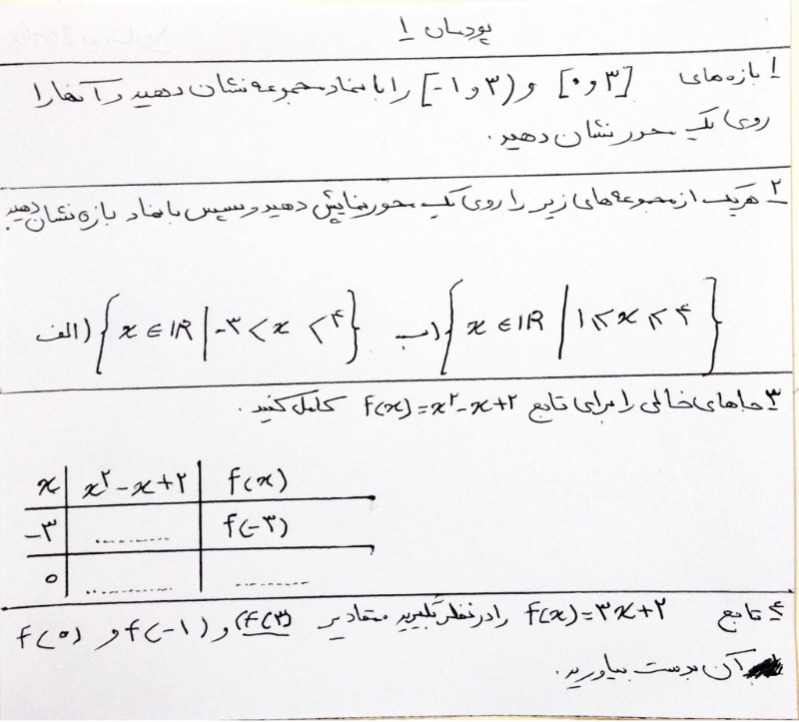 پودمان 1
1 بازه‌های [۰ و ۳] و (۳ و ۱-] را با نماد مجموعه نشان دهید و آنها را
روی یک محور نشان دهید.
۲ هریک از مجموعه‌های زیر را روی یک محور نمایش دهید و سپس با نماد بازه نشان دهید.
الف) {x ∈ IR | -۳ < x < ۴} ب) {x ∈ IR | ۱ ≤ x ≤ ۴}
۳ جاهای خالی را برای تابع f(x)=x²-x+۲ کامل کنید.
x | x²-x+۲ | f(x)
-۳ | .......... | f(-۳)
۰ | .......... | ..........
۴ تابع f(x)=۳x+۲ را در نظر بگیرید مقادیر f(۳) و f(-۱) و f(۰)
آن بدست بیاورید.